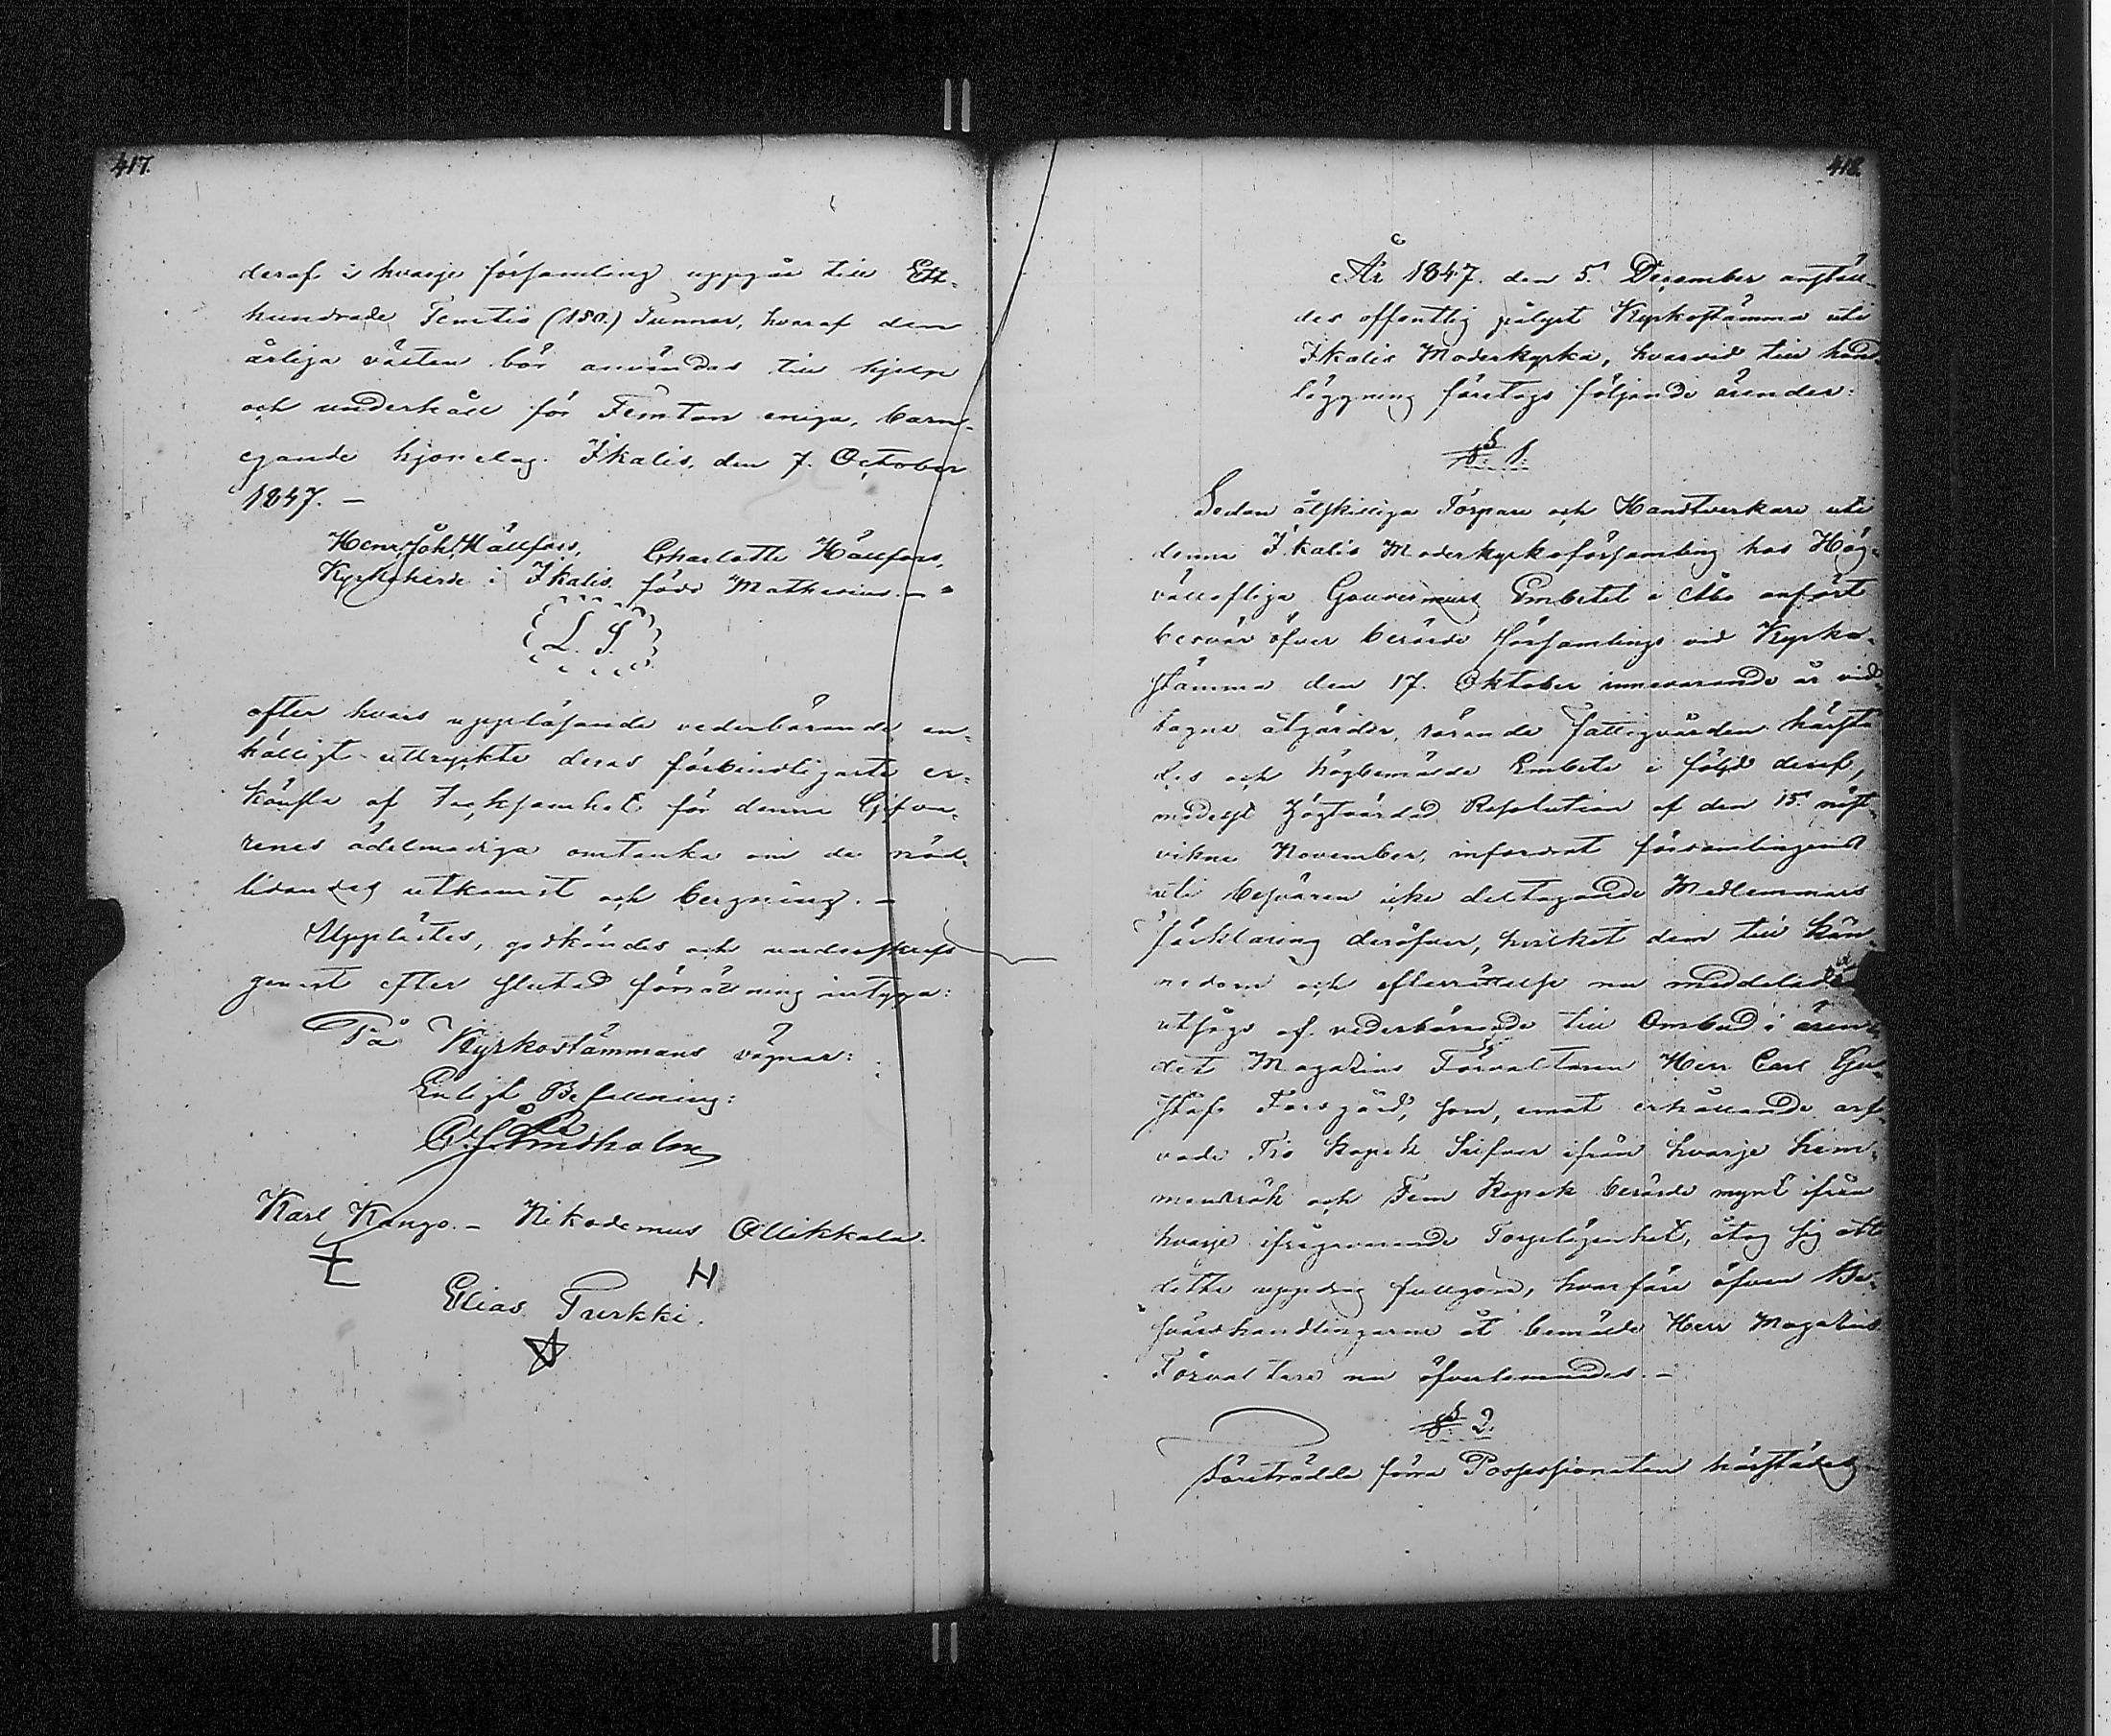 417.
deraf i hvarje församling uppgår till Ett-
hundrade Femtio (150.) Tunnor, hvaraf den
årliga räntan bör användas till hjelp
och underhåll för Femton eniga, barn-
egande hjonelag. Ikalis, den 7. October
1847. –
Henr. Joh. Hällfors, Charlotta Hällfors,
Kyrkoherde i Ikalis. född Mathesius. –
L. S.
efter hvars uppläsande vederbörande en-
hälligt uttryckte deras förbindligaste er-
känsla af tacksamhet för denna Gifva-
renes ädelmodiga omtanka om de nöd-
lidandes utkomst och bergning. –
Upplästes, godkändes och underskrefs
genast efter slutad förrättning intyga:
På Kyrkostämmans vägnar:
Enligt Befallning:
Lindholm
Karl Kango. – Nikodemus Ollikkala.
H
Elias Turkki.
418.
År 1847. den 5. December anstäl-
des offentlig pålyst Kyrkostämma uti
Ikalis Moderkyrka, hvarvid till hand-
läggning företogs följande ärender:
§ 1.
Sedan åtskilliga Torpare och Handtverkare uti
denna Ikalis Moderkyrkoförsamling hos Hög-
vällofliga Gouverneurs Embetet i Åbo anfört
besvär öfver berörde församlings vid Kyrko-
stämma den 17. Oktober innevarande år vid-
tagne åtgärder, rörande fattigvården härstä-
des och högbemälde Embete i följd deraf,
medelst högtvördad Resolution af den 15. näst-
vikne November, infordrat församlingens
uti besvären icke deltagande Medlemmars
förklaring deröfver, hvilket dem till kän-
nedom och efterrättelse nu meddelades
utsågs af vederbörande till Ombud i ären-
det Magazins Förvaltaren Herr Carl Gu-
staf Forsgård, som, emot erhållande arf-
vode Tio Kopek Silfver ifrån hvarje hem-
mansrök och Fem Kopek berörde mynt ifrån
hvarje ifrågavarande Torplägenhet, åtog sig att
detta uppdrag fullgöra, hvarföre äfven Be-
svärshandlingarne åt bemälde Herr Magazins
Förvaltare nu öfverlemnades. –
§ 2.
Företrädde förra Possessionaten härstädes